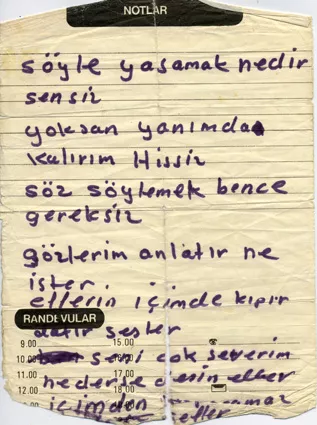 NOTLAR
söyle yaşamak nedir
sensiz
yoksan yanımda
kalırım Hissiz
söz söylemek bence
gereksiz
gözlerim anlatır ne
ister
ellerin içimde kıpır
sesler
RANDEVULAR
9.00 15.00
10.00 16.00 seni çok severim
11.00 17.00 nederse desin eller
12.00 18.00 içimden
eller